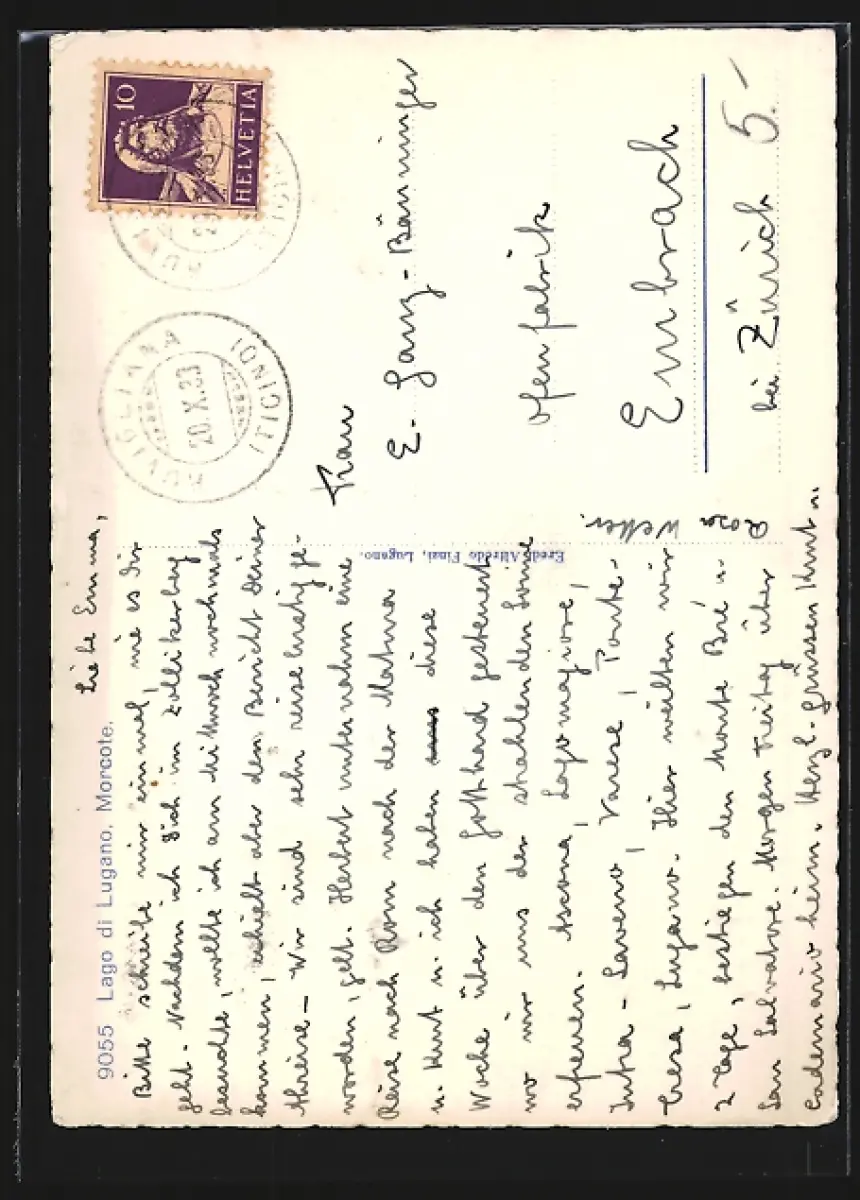 9055 Lago di Lugano. Morcote.
Liebe Emma,
Bitte schreibe mir einmal, wie es Dir
geht. Nachdem ich Dich im Zollikerberg
besuchte, wollte ich am Mittwoch nochmals
kommen, erhielt aber den Bericht Deiner
Abreise – Wir sind sehr reiselustig ge-
worden, gelt. Herbert unternahm eine
Reise nach Rom nach der Matura
u. Kurt u. ich haben diese
Woche über den Gotthard gesteuert
wo wir uns der strahlenden Sonne
erfreuen. Ascona, Lago magiore,
Intra - Laveno, Varese, Ponte-
Tresa, Lugano. Hier weilten wir
2 Tage, bestiegen den Monte Bré u.
San Salvatore. Morgen Freitag über
Cademario heim. Herzl. Grüssen Kurt u.
Rosa
Eredi Alfredo Finzi, Lugano.
10
HELVETIA
RUVIGLIANA
20.X.33
(TICINO)
Frau
E. Ganz-Bänninger
Ofenfabrik
Embrach
bei Zürich
5.-